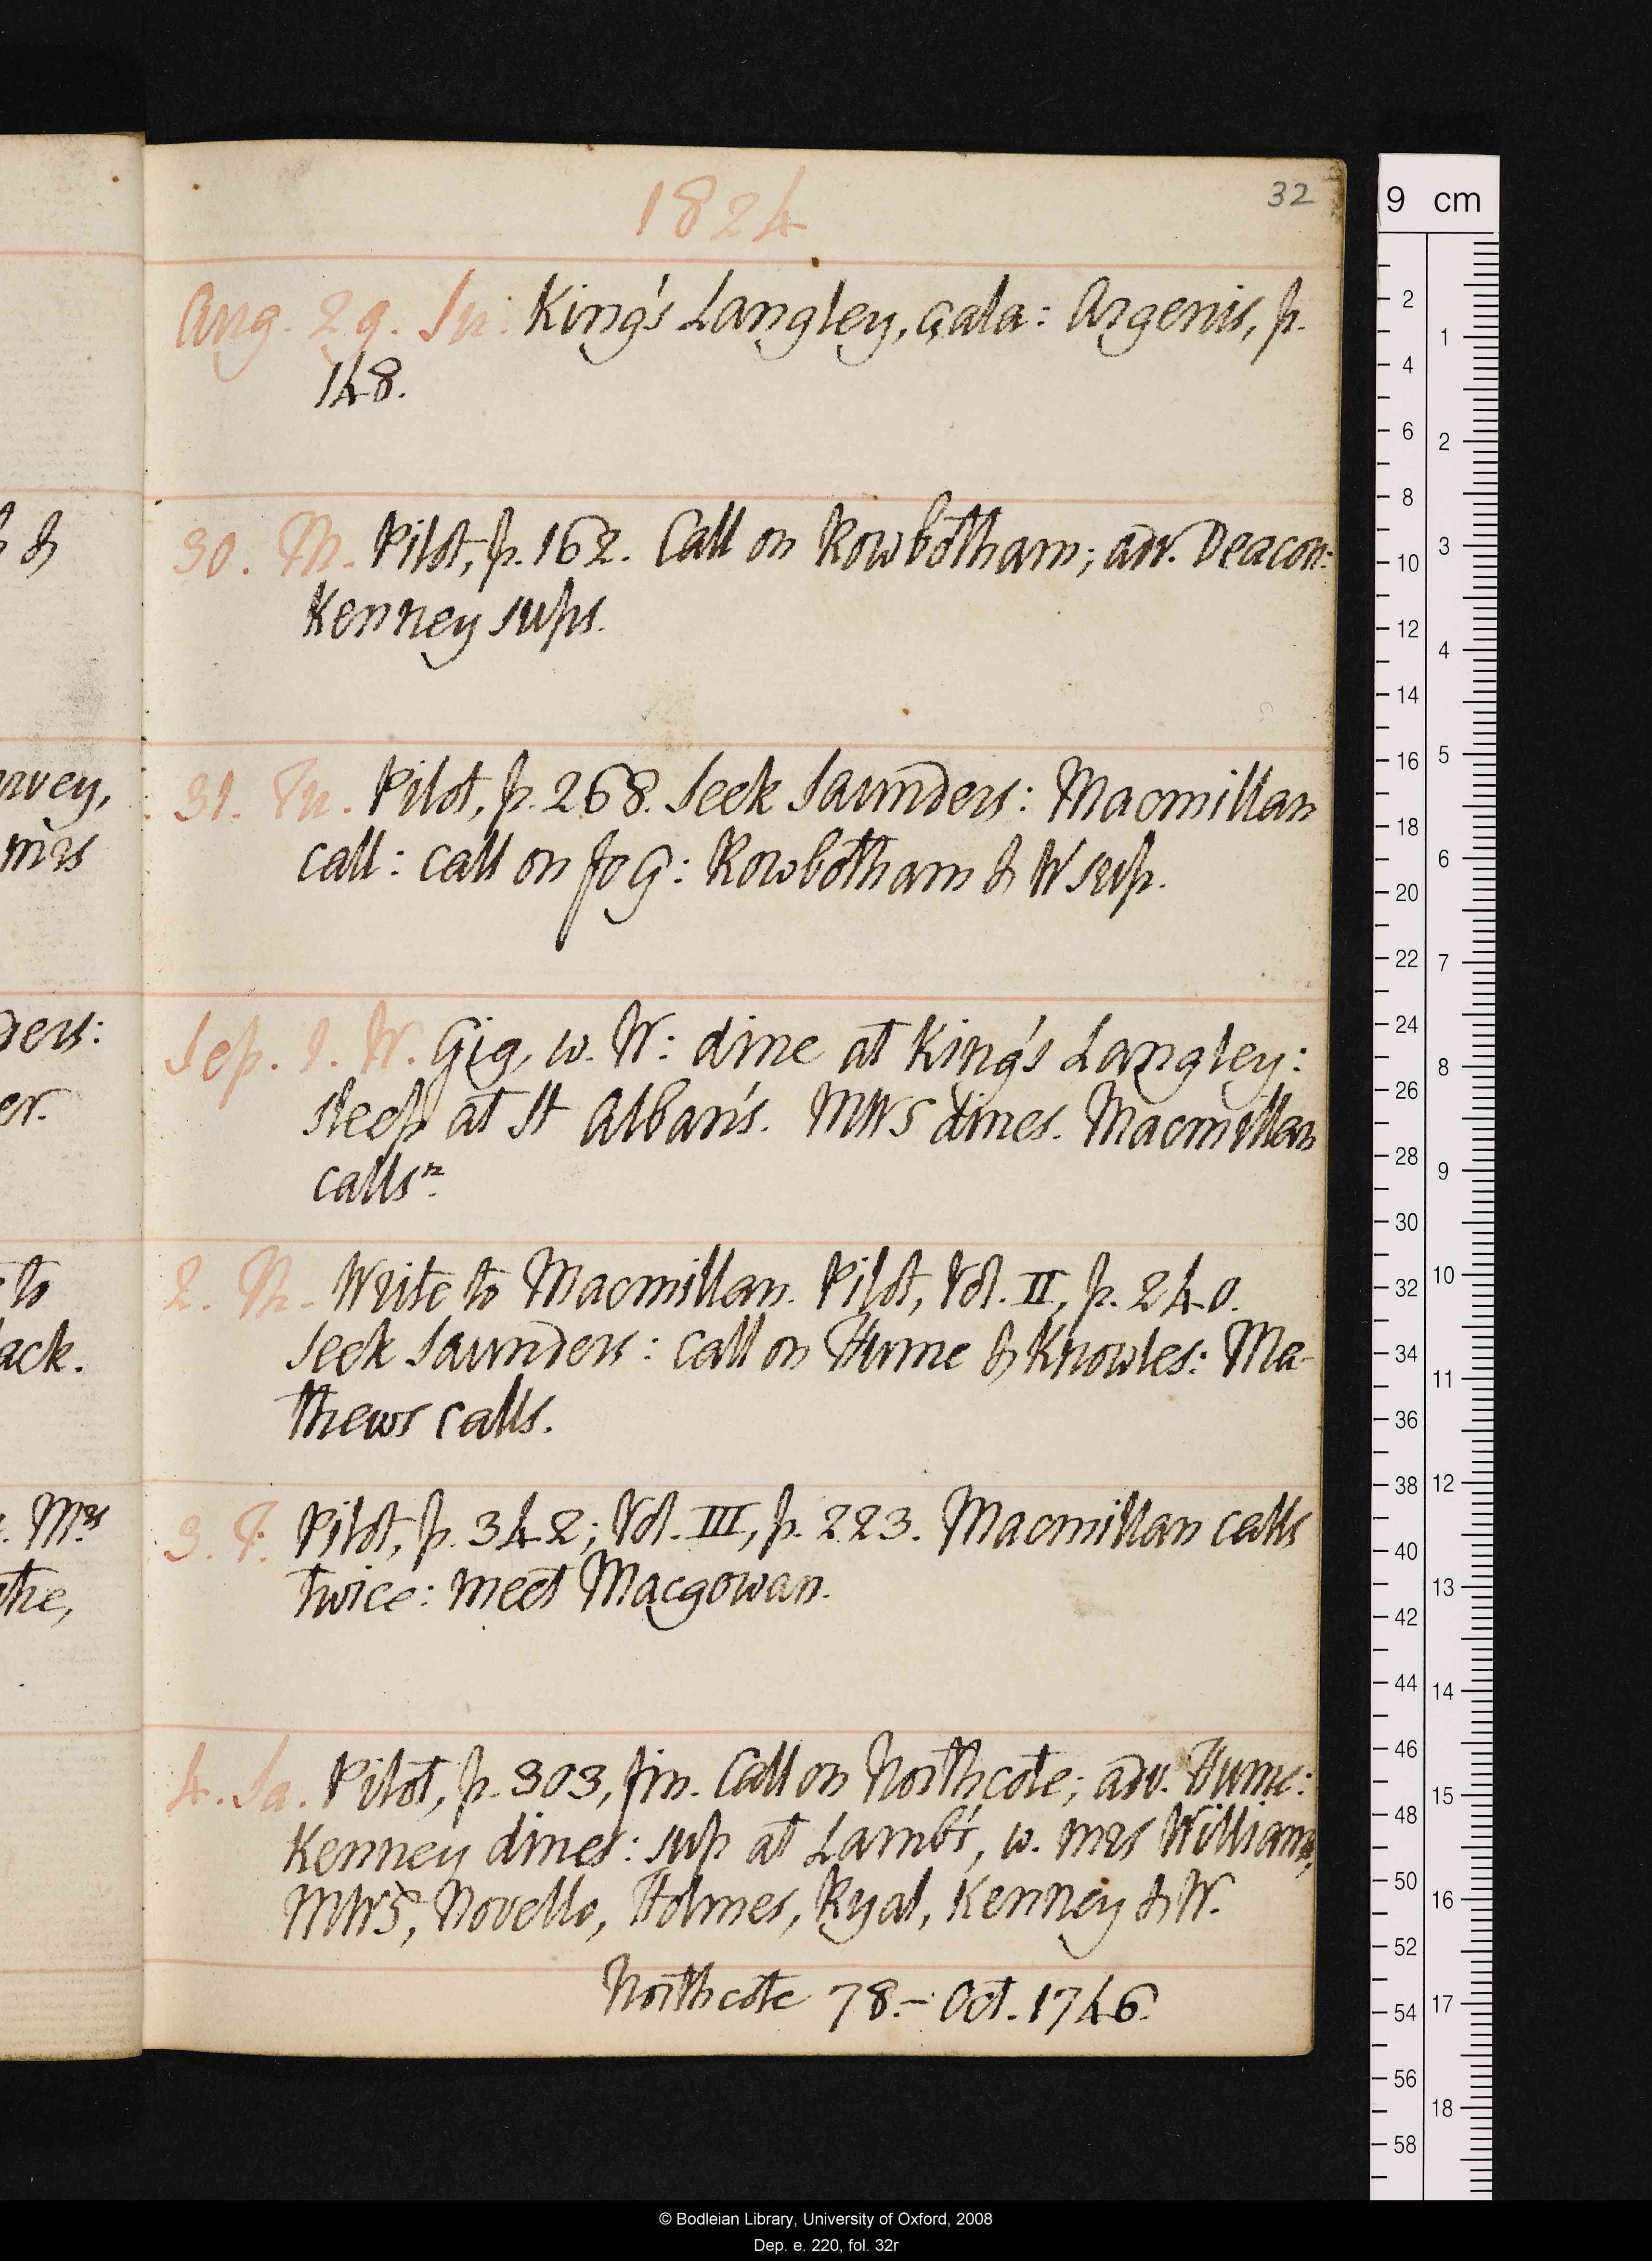 1824
32
Aug. 29. Su. King's Langley, gala: Argenis, p.
148.
30. M. Pilot, p. 162. Call on Rowbotham; adv. Deacon:
Kenney sups.
31. Tu. Pilot, p. 268. Seek Saunders: Macmillan
call: call on Jo G: Rowbotham & W sup.
Sep. 1. W. Gig, w. W: dine at King's Langley:
sleep at St Alban's. MWS dines. Macmillan
calls n.
2. Th. Write to Macmillan. Pilot, Vol. II, p. 240.
Seek Saunders: call on Hume & Knowles: Ma-
thews calls.
3. F. Pilot, p. 342; Vol. III, p. 223. Macmillan calls
twice: meet Macgowan.
4. Sa. Pilot, p. 303, fin. Call on Northcote; adv. Hume:
Kenney dines: sup at Lamb's, w. mrs Williams,
MWS, Novello, Holmes, Ryal, Kenney & W.
Northcote 78.— Oct. 1746.
&
rvey,
mrs
ders:
er.
to
ack.
Mrs
the,
9 cm
2
4
6
8
10
12
14
16
18
20
22
24
26
28
30
32
34
36
38
40
42
44
46
48
50
52
54
56
58
1
2
3
4
5
6
7
8
9
10
11
12
13
14
15
16
17
18
© Bodleian Library, University of Oxford, 2008
Dep. e. 220, fol. 32r